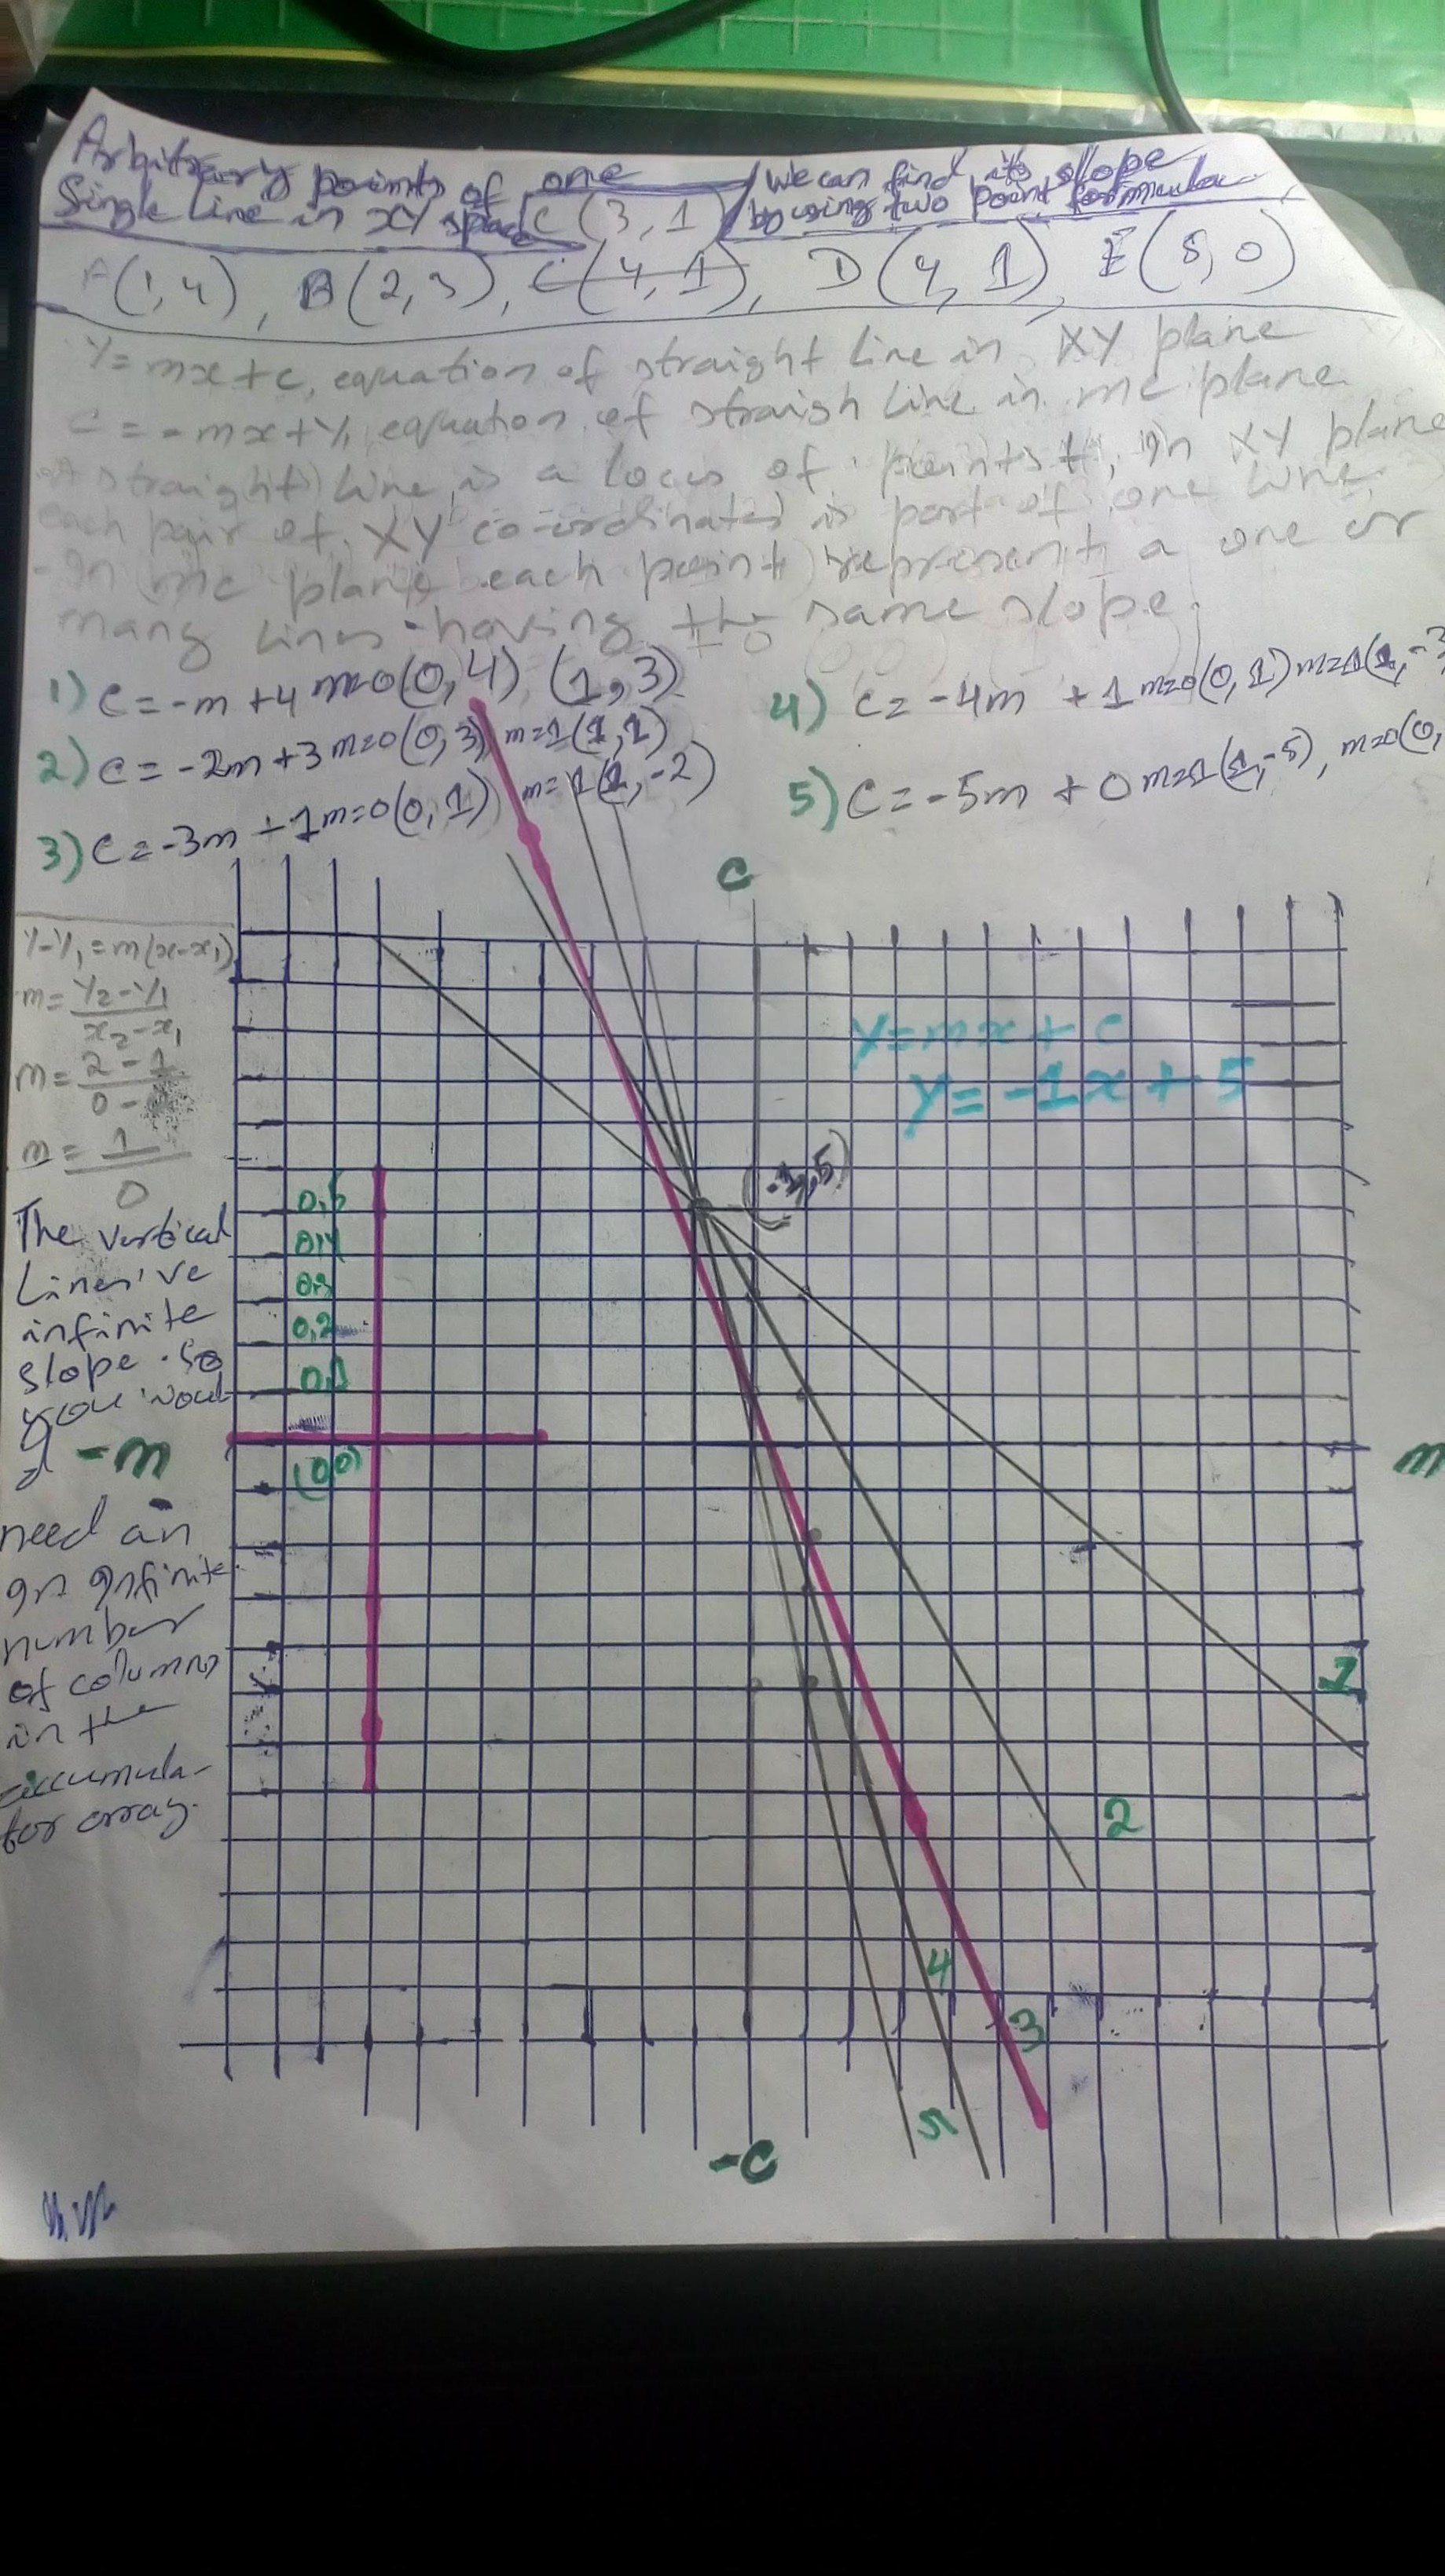 Arbitrary points of one
Single Line in XY space
C (3, 1)
We can find its slope
by using two point formula
A(1, 4), B(2, 3), C(4, 1), D(4, 1), E(5, 0)
Y=mx+c, equation of straight line in XY plane
C = -mx+y, equation of straigh line in mc plane.
A straight line is a locus of points, In XY plane
each pair of XY co-ordinates is part of one line.
-In mc plane each point represents a one or
many lines having the same slope.
1) C=-m+4 m=0(0,4) (1,3)
2) C=-2m+3 m=0(0,3) m=1(1,1)
3) C=-3m+1 m=0(0,1) m=1(1,-2)
4) C=-4m +1 m=0(0,1) m=1(1,-3
5) C=-5m + 0 m=1(1,-5), m=0(0,
C
Y-Y1=m(x-x1)
m=Y2-Y1
x2-x1
m=2-1
0-
m=1
0
Y=mx+c
Y=-1x+5
(-1,5)
0,5
0,4
0,3
0,2
0,1
(0,0)
The vertical
Lines've
infinite
slope. So
you woul-
d
-m
m
need an
an infinite
number
of columns
in the
accumula-
tor array.
1
2
4
3
5
-C